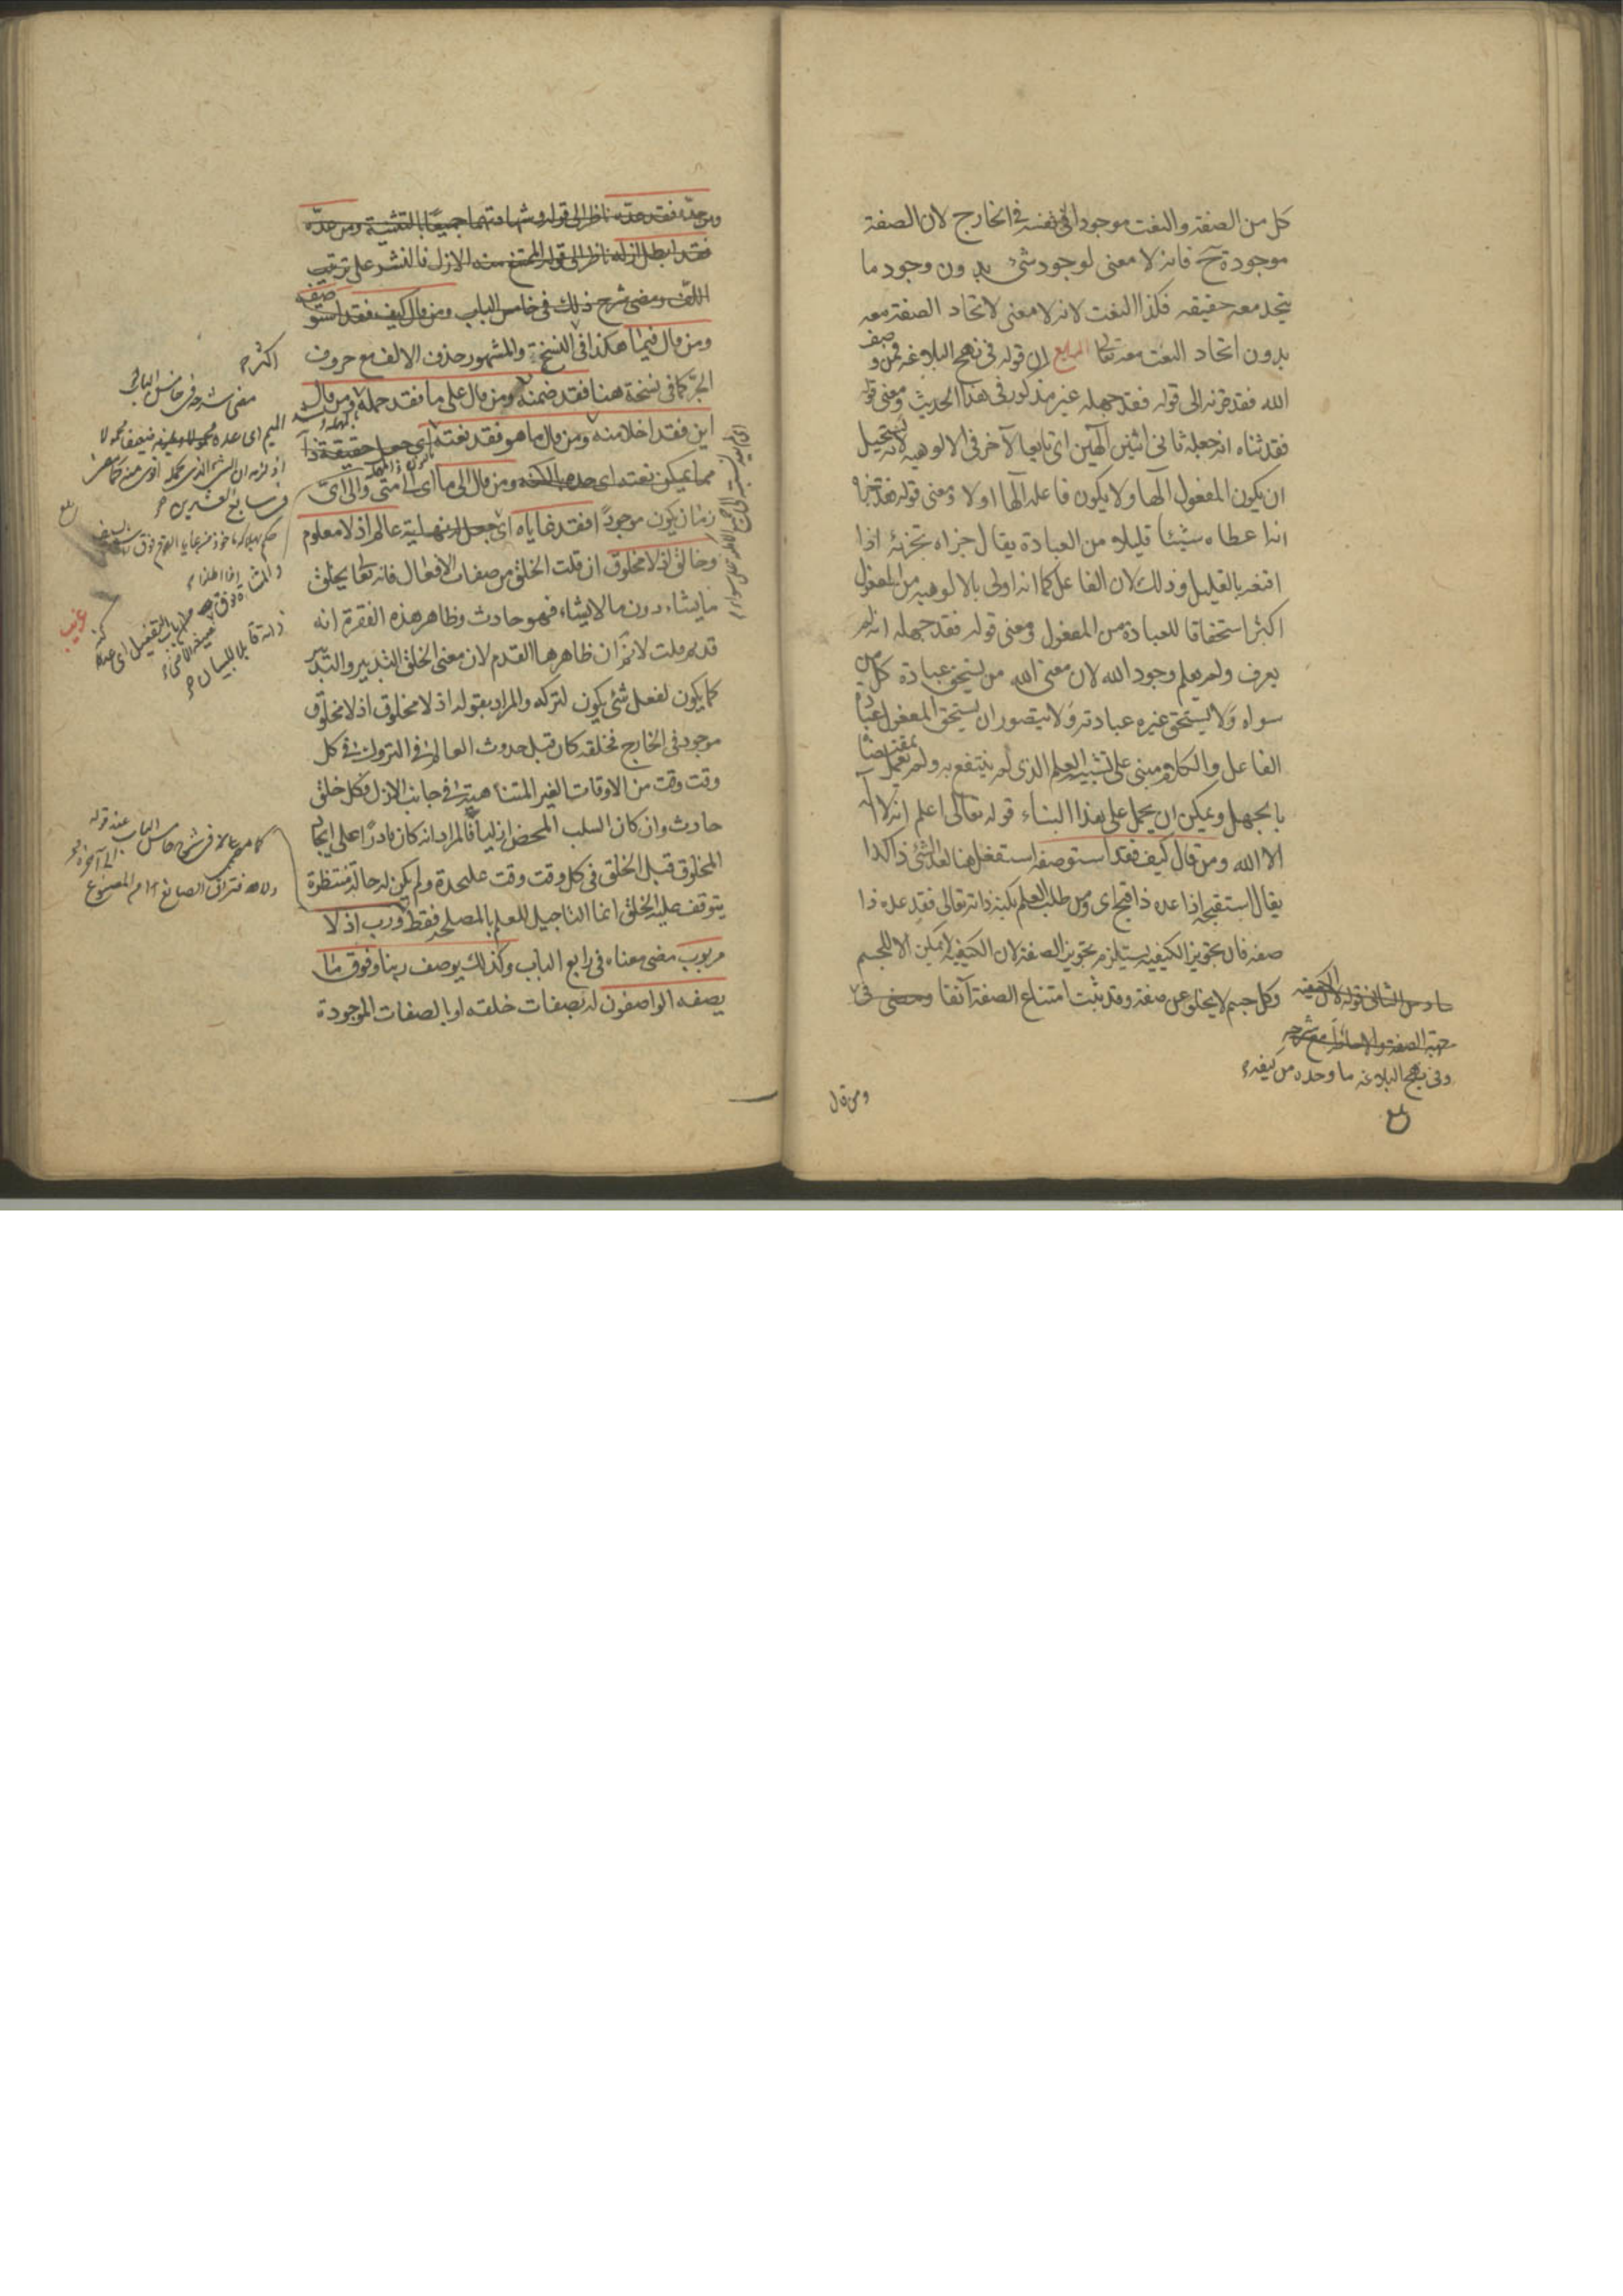 كل من الصفة والنعت موجودا في نفسه في الخارج لان الصفة
موجودة ح فانه لا معنى لوجود شئ بدون وجود ما
يتحد معه حقيقه فكذا النعت لانه لا معنى لاتحاد الصفة معه
بدون اتحاد النعت معه تعالى الرابع ان قوله في نهج البلاغه فمن وصف
الله فقد قرنه الى قوله فقد جهله غير مذكور في هذا الحديث ومعنى قوله
فقد ثناه انه جعله ثاني اثنين آلهين اى تابعا لآخر في الالوهيه لانه يستحيل
ان يكون المفعول آلها ولا يكون فاعله آلها اولا ومعنى قوله فقد جزاه
انه اعطاه شيئا قليلا من العبادة يقال جزاه تجزئه اذا
اقنعه بالقليل وذلك لان الفاعل كما انه اولى بالالوهيه من المفعول
اكثر استحقاقا للعبادة من المفعول ومعنى قوله فقد جهله انه لم
يعرف ولم يعلم وجود الله لان معنى الله من يستحق عبادة كل من
سواه ولا يستحق غيره عبادته ولا يتصور ان يستحق المفعول عبادة
الفاعل والكلام مبنى على تشبيه العلم الذى لم ينتفع به ولم يعمل بمقتضاه
بالجهل ويمكن ان يحمل على هذا البناء قوله تعالى اعلم انه لا آله
الا الله ومن قال كيف فقد استوصفه استفعل هنا لعد الشئ ذا كذا
يقال استقبحه اذا عده ذا قبح اى ومن طلب العلم بكنه ذاته تعالى فقد عده ذا
صفه فان تجويز الكيفيه يستلزم تجويز الصفة لان الكيفيه لا يمكن الا للجسم
وكل جسم لا يخلو عن صفة وقد ثبت امتناع الصفة آنفا ومضى في
الثاني قوله لان الكيفيه
جهة الصفة والاحاطة مع شرحه
وفي نهج البلاغه ما وحده من كيفه
ومن قال
ومن حده فقد عده ناظر الى قوله وشهادتهما جميعا بالتثنية ومن عده
فقد ابطل ازله ناظر الى قوله الممتنع منه الازل فالنشر على ترتيب
اللف ومضى شرح ذلك في خامس الباب ومن قال كيف فقد استوصفه
ومن قال فيما هكذا في النسخ والمشهور حذف الالف مع حروف
الجر كما في نسخة هنا فقد ضمنه ومن قال على ما فقد حمله ومن قال
اين فقد اخلا منه ومن قال ما هو فقد نعته اى جعل حقيقة ذاته
مما يمكن نعته اى حده بالكنه ومن قال الى ما اى الى متى والى اى
زمان يكون موجودا فقد غاياه اى جعل له نهاية عالم اذ لا معلوم
وخالق اذ لا مخلوق ان قلت الخلق من صفات الافعال فانه تعالى يخلق
ما يشاء دون ما لا يشاء فهو حادث وظاهر هذه الفقرة انه
قديم قلت لا نم ان ظاهرها القدم لان معنى الخلق التدبير والتدبير
كما يكون لفعل شئ يكون لتركه والمراد بقوله اذ لا مخلوق اذ لا مخلوق
موجود في الخارج فخلقه كان قبل حدوث العالم في التروك في كل
وقت وقت من الاوقات الغير المتناهية في جانب الازل فكل خلق
حادث وان كان السلب المحض ازليا فالمراد انه كان قادرا على ايجاد
المخلوق قبل الخلق في كل وقت وقت عليحدة ولم يكن له حالة منتظرة
يتوقف عليه الخلق انما التاجيل للعلم بالمصلحه فقط ورب اذ لا
مربوب مضى معناه في رابع الباب وكذلك يوصف ربنا وفوق ما
يصفه الواصفون له بصفات خلقه او بالصفات الموجودة
مضى شرحه في خامس الباب
غريب